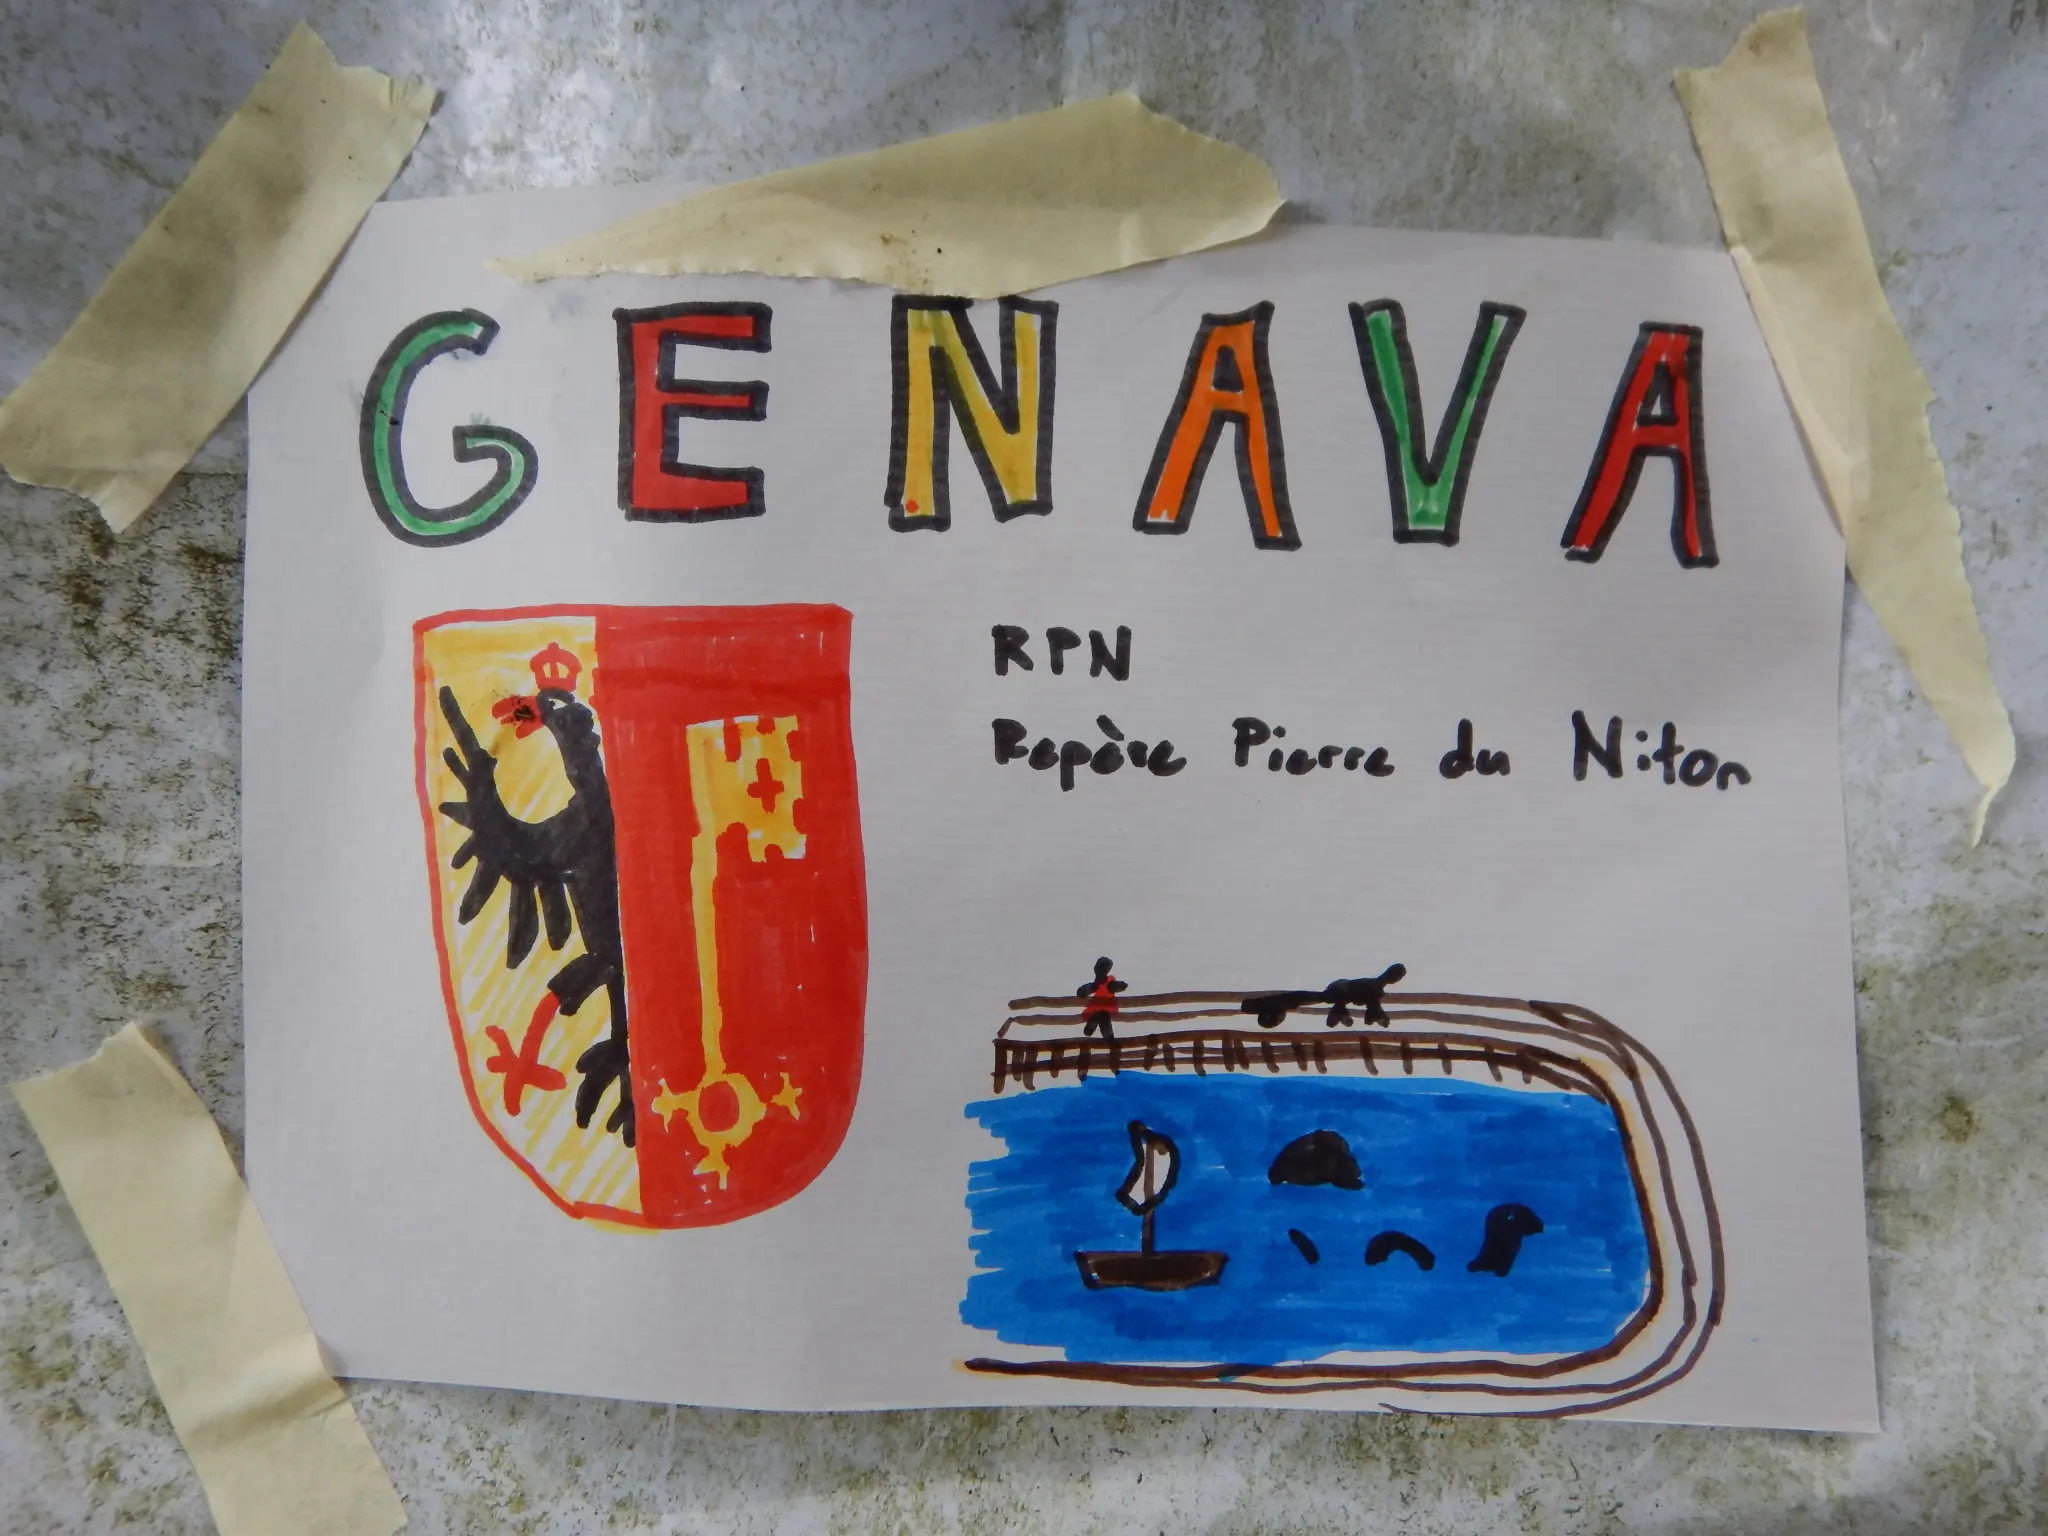 GENAVA
RPN
Repère Pierre du Niton